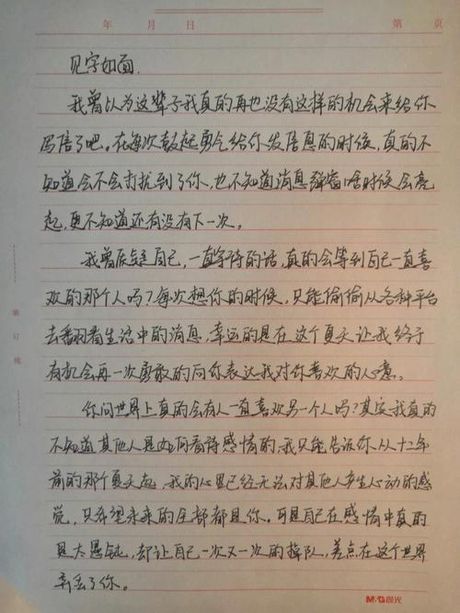 年 月 日 第 页
见字如面.
我曾以为这辈子我真的再也没有这样的机会来给你
写信了吧。在每次鼓起勇气给你发信息的时候,真的不
知道会不会打扰到了你,也不知道消息弹窗啥时候会亮
起,更不知道还有没有下一次。
我曾质疑自己,一直等待的话,真的会等到自己一直喜
欢的那个人吗?每次想你的时候,只能偷偷从各种平台
去翻看生活中的消息,幸运的是在这个夏天让我终于
有机会再一次勇敢的向你表达我对你喜欢的心意。
你问世界上真的会有人一直喜欢另一个人吗?其实我真的
不知道其他人是如何看待感情的,我只能告诉你从十二年
前的那个夏天起,我的心里已经无法对其他人产生心动的感
觉,只希望未来的全部都是你。可是自己在感情中真的
是太愚钝,却让自己一次又一次的掉队,差点在这个世界
弄丢了你。
装订线
M&G晨光